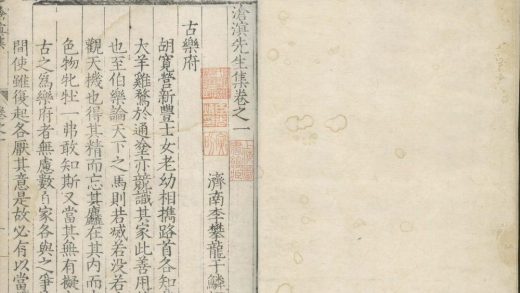 滄溟先生集卷之一
濟南李攀龍于鱗
古樂府
胡寬營新豐士女老幼相攜路首各知
犬羊雞鶩於通塗亦競識其家此善用
也至伯樂論天下之馬則若滅若沒若
觀天機也得其精而忘其麤在其內而
色物牝牡一弗敢知斯又當其無有擬
古之爲樂府者無慮數百家各與之爭
間使雖復起各厭其意是故必有以當